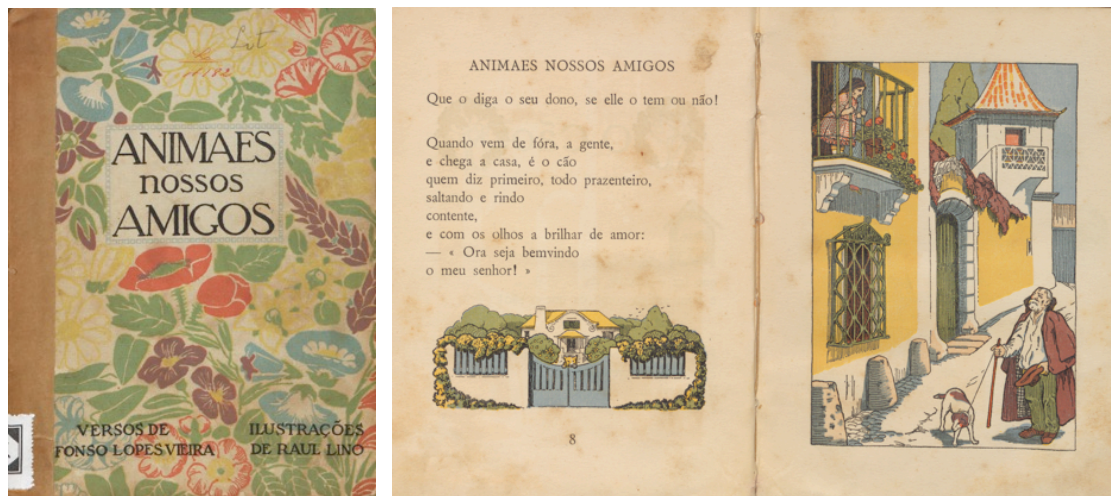 Lit
ANIMAES
nossos
AMIGOS
VERSOS DE
FONSO LOPES VIEIRA
ILUSTRAÇÕES
DE RAUL LINO
ANIMAES NOSSOS AMIGOS
Que o diga o seu dono, se elle o tem ou não!
Quando vem de fóra, a gente,
e chega a casa, é o cão
quem diz primeiro, todo prazenteiro,
saltando e rindo
contente,
e com os olhos a brilhar de amor:
— « Ora seja bemvindo
o meu senhor! »
8